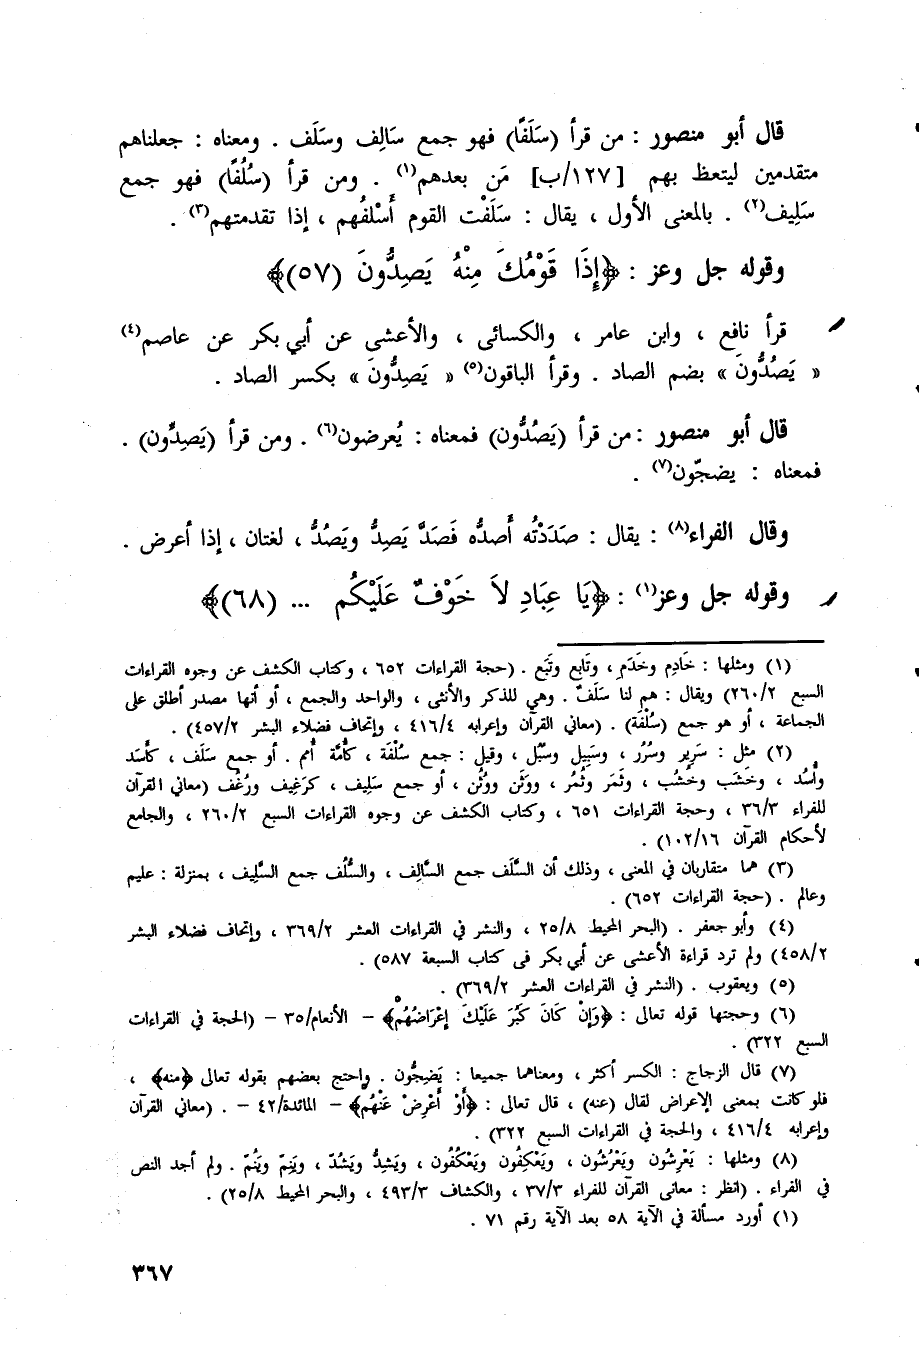 قال أبو منصور : من قرأ (سَلَفًا) فهو جمع سَالِف وسَلَف . ومعناه : جعلناهم
متقدمين ليتعظ بهم [١٢٧/ب] مَن بعدهم(١) . ومن قرأ (سُلُفًا) فهو جمع
سَلِيف(٢) . بالمعنى الأول ، يقال : سَلَفْت القوم أَسْلفُهم ، إذا تقدمتهم(٣) .
وقوله جل وعز : ﴿إِذَا قَوْمُكَ مِنْهُ يَصِدُّونَ (٥٧)﴾
قرأ نافع ، وابن عامر ، والكسائى ، والأعشى عن أبي بكر عن عاصم(٤)
« يَصُدُّونَ » بضم الصاد . وقرأ الباقون(٥) « يَصِدُّونَ » بكسر الصاد .
قال أبو منصور : من قرأ (يَصُدُّون) فمعناه : يُعرضون(٦) . ومن قرأ (يَصِدُّون) .
فمعناه : يضجّون(٧) .
وقال الفراء(٨) : يقال : صَدَدْتُه أَصدُّه فَصَدَّ يَصِدُّ ويَصُدُّ ، لغتان ، إذا أعرض .
وقوله جل وعز(١) : ﴿يَا عِبَادِ لاَ خَوْفٌ عَلَيْكُم ... (٦٨)﴾
(١) ومثلها : خَادِم وخَدَم ، وتَابِع وتَبَع . (حجة القراءات ٦٥٢ ، وكتاب الكشف عن وجوه القراءات
السبع ٢٦٠/٢) ويقال : هم لنا سَلَفٌ . وهي للذكر والأنثى ، والواحد والجمع ، أو أنها مصدر أطلق على
الجماعة ، أو هو جمع (سُلْفَة) . (معاني القرآن وإعرابه ٤١٦/٤ ، وإتحاف فضلاء البشر ٤٥٧/٢) .
(٢) مثل : سَرِير وسُرُر ، وسَبِيل وسبُل ، وقيل : جمع سُلْفَة ، كأُمَّة أُمم . أو جمع سَلَف ، كأَسَد
وأُسُد ، وخَشَب وخُشُب ، وثَمَر وثُمُر ، ووَثَن ووُثُن ، أو جمع سَلِيف ، كرَغِيف ورُغُف (معاني القرآن
للفراء ٣٦/٣ ، وحجة القراءات ٦٥١ ، وكتاب الكشف عن وجوه القراءات السبع ٢٦٠/٢ ، والجامع
لأحكام القرآن ١٠٢/١٦) .
(٣) هما متقاربان في المعنى ، وذلك أن السَّلَف جمع السَّالِف ، والسُّلُف جمع السَّلِيف ، بمنزلة : عليم
وعالم . (حجة القراءات ٦٥٢) .
(٤) وأبو جعفر . (البحر المحيط ٢٥/٨ ، والنشر في القراءات العشر ٣٦٩/٢ ، وإتحاف فضلاء البشر
٤٥٨/٢) ولم ترد قراءة الأعشى عن أبي بكر فى كتاب السبعة ٥٨٧) .
(٥) ويعقوب . (النشر في القراءات العشر ٣٦٩/٢) .
(٦) وحجتها قوله تعالى : ﴿وَإِنْ كَانَ كَبُرَ عَلَيْكَ إِعْرَاضُهُمْ﴾ – الأنعام/٣٥ – (الحجة في القراءات
السبع ٣٢٢) .
(٧) قال الزجاج : الكسر أكثر ، ومعناهما جميعا : يَضِجُّون . واحتج بعضهم بقوله تعالى ﴿منه﴾ ،
فلو كانت بمعنى الإعراض لقال (عنه) ، قال تعالى : ﴿أَوْ أَعْرِضْ عَنْهُم﴾ – المائدة/٤٢ – . (معاني القرآن
وإعرابه ٤١٦/٤ ، والحجة في القراءات السبع ٣٢٢) .
(٨) ومثلها : يَعْرِشُون ويَعْرُشُون ، ويَعْكِفُون ويَعْكُفُون ، ويَشِدُّ ويَشُدّ ، ويَنِمّ ويَنُمّ . ولم أجد النص
في الفراء . (انظر : معانى القرآن للفراء ٣٧/٣ ، والكشاف ٤٩٣/٣ ، والبحر المحيط ٢٥/٨) .
(١) أورد مسألة في الآية ٥٨ بعد الآية رقم ٧١ .
٣٦٧